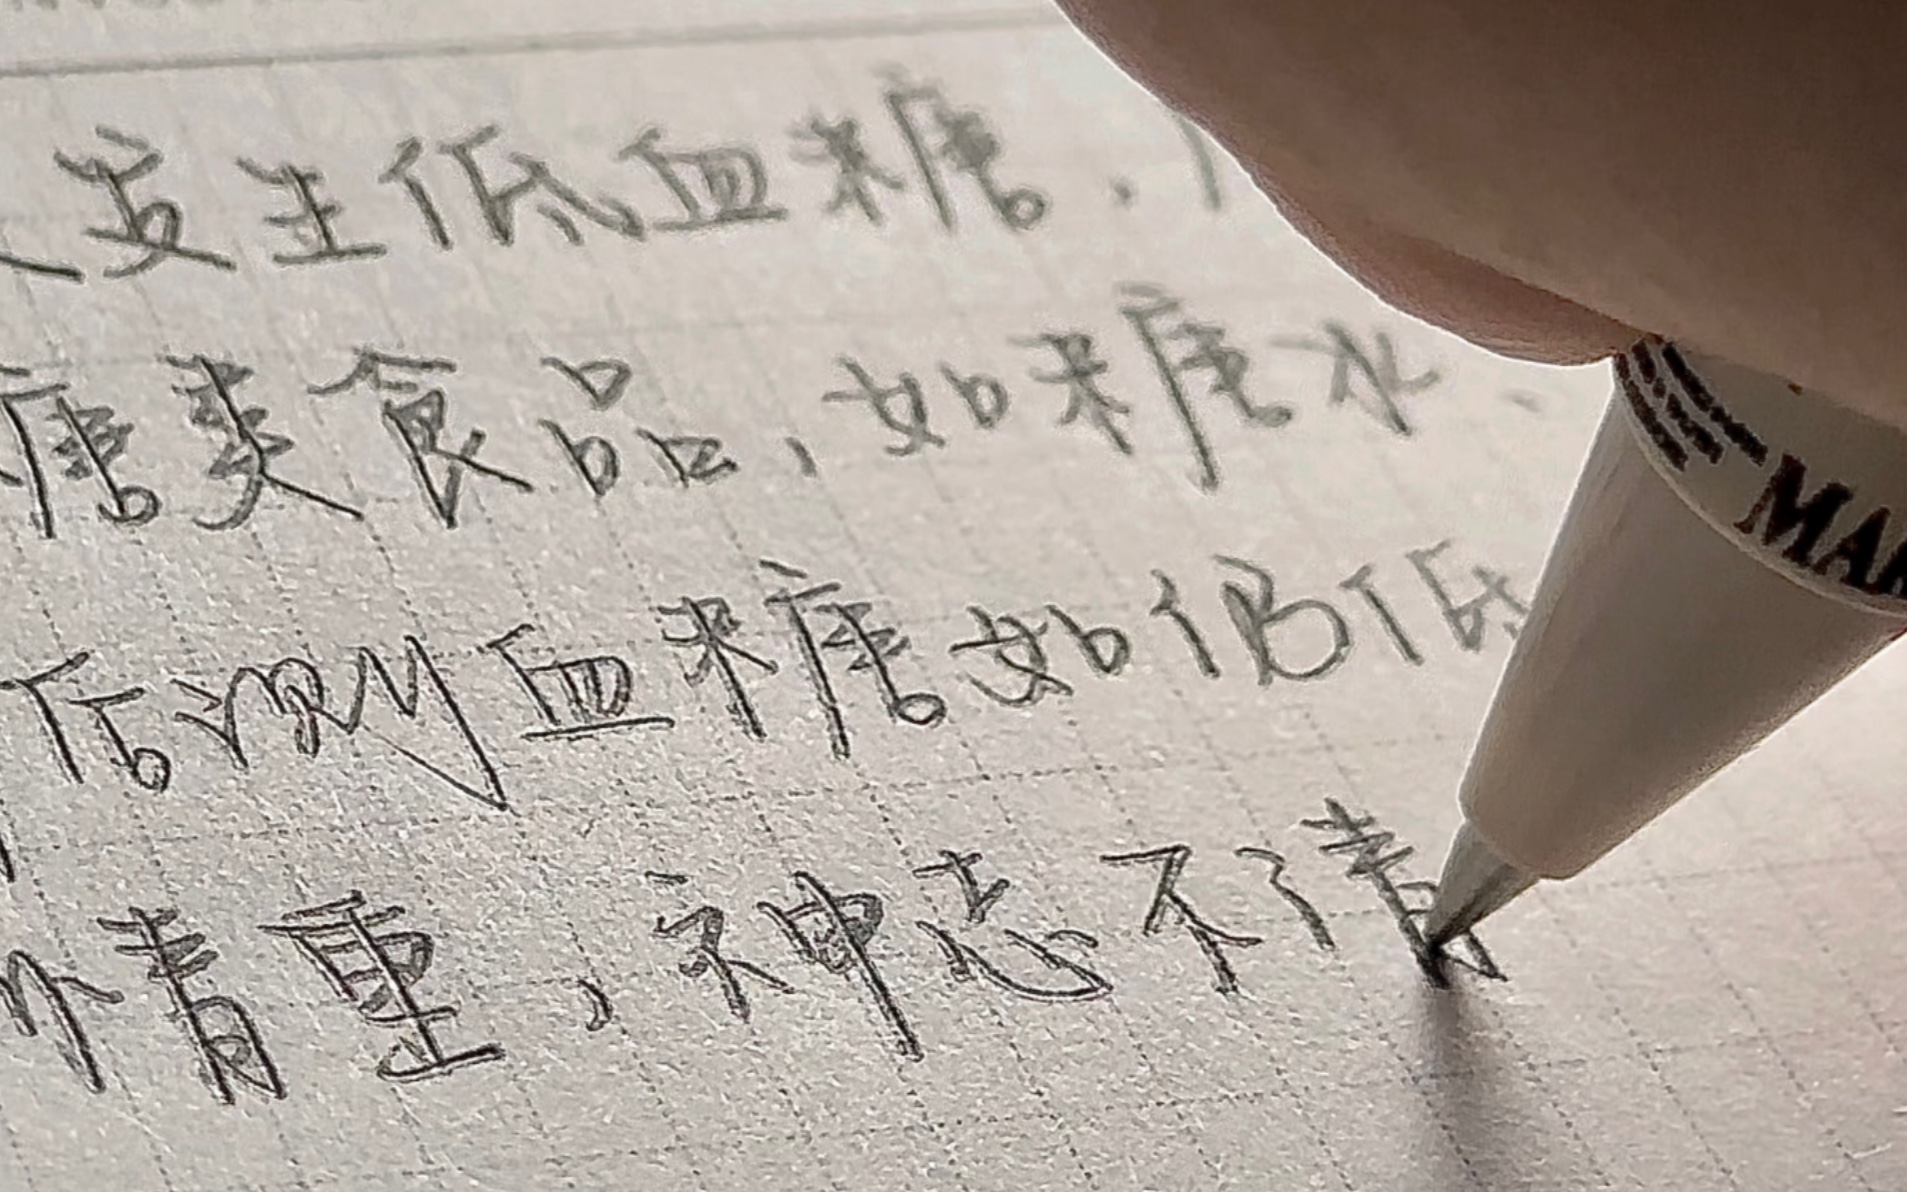 发生低血糖.
糖类食品,如糖水
后测血糖如仍低
情重,神志不清
MAR